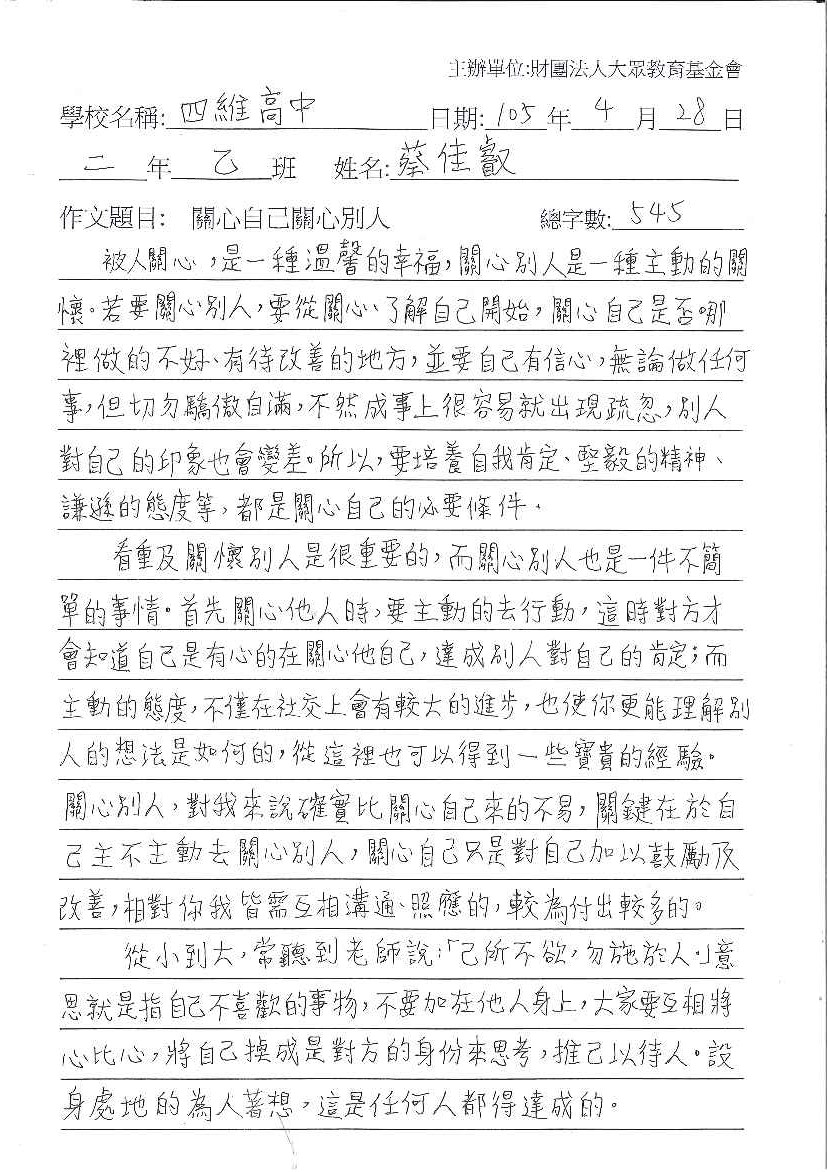 主辦單位:財團法人大眾教育基金會
學校名稱: 四維高中 日期: 105 年 4 月 28 日
二 年 乙 班 姓名: 蔡佳叡
作文題目: 關心自己關心別人 總字數: 545
被人關心,是一種溫馨的幸福,關心別人是一種主動的關
懷。若要關心別人,要從關心、了解自己開始,關心自己是否哪
裡做的不好、有待改善的地方,並要自己有信心,無論做任何
事,但切勿驕傲自滿,不然成事上很容易就出現疏忽,別人
對自己的印象也會變差。所以,要培養自我肯定、堅毅的精神、
謙遜的態度等,都是關心自己的必要條件。
看重及關懷別人是很重要的,而關心別人也是一件不簡
單的事情。首先關心他人時,要主動的去行動,這時對方才
會知道自己是有心的在關心他自己,達成別人對自己的肯定;而
主動的態度,不僅在社交上會有較大的進步,也使你更能理解別
人的想法是如何的,從這裡也可以得到一些寶貴的經驗。
關心別人,對我來說確實比關心自己來的不易,關鍵在於自
己主不主動去關心別人,關心自己只是對自己加以鼓勵及
改善,相對你我皆需互相溝通、照應的,較為付出較多的。
從小到大,常聽到老師說:「己所不欲,勿施於人。」意
思就是指自己不喜歡的事物,不要加在他人身上,大家要互相將
心比心,將自己換成是對方的身份來思考,推己以待人。設
身處地的為人著想,這是任何人都得達成的。